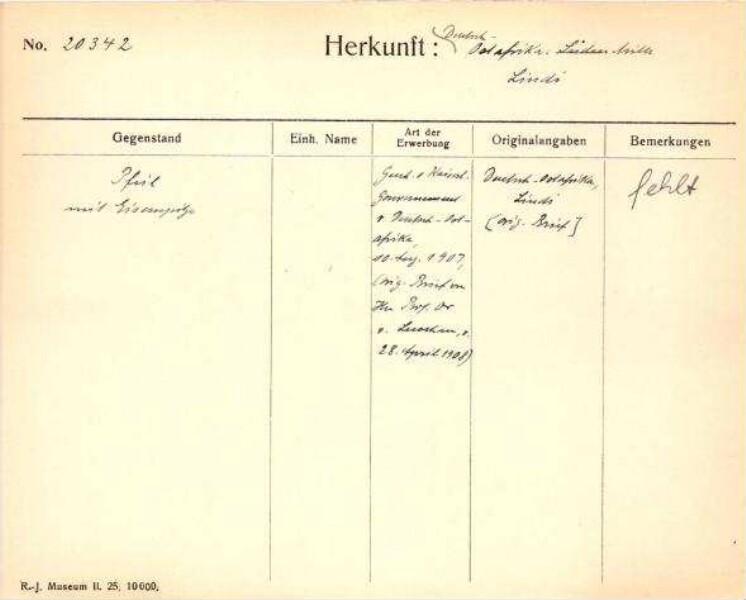 No. 20342
Herkunft: Deutsch-
Ostafrika.
Lindi
Gegenstand
Einh. Name
Art der
Erwerbung
Originalangaben
Bemerkungen
Pfeil
mit Eisenspitze
Gesch. v. Kaiserl.
Gouvernement
v. Deutsch-Ost-
afrika,
1907,
(orig. Brief von
Hrn Prof. Dr
v. Luschan, v.
28. April 1908)
Deutsch-Ostafrika,
Lindi
[orig. Brief]
fehlt
R.-J. Museum II. 25, 10000.